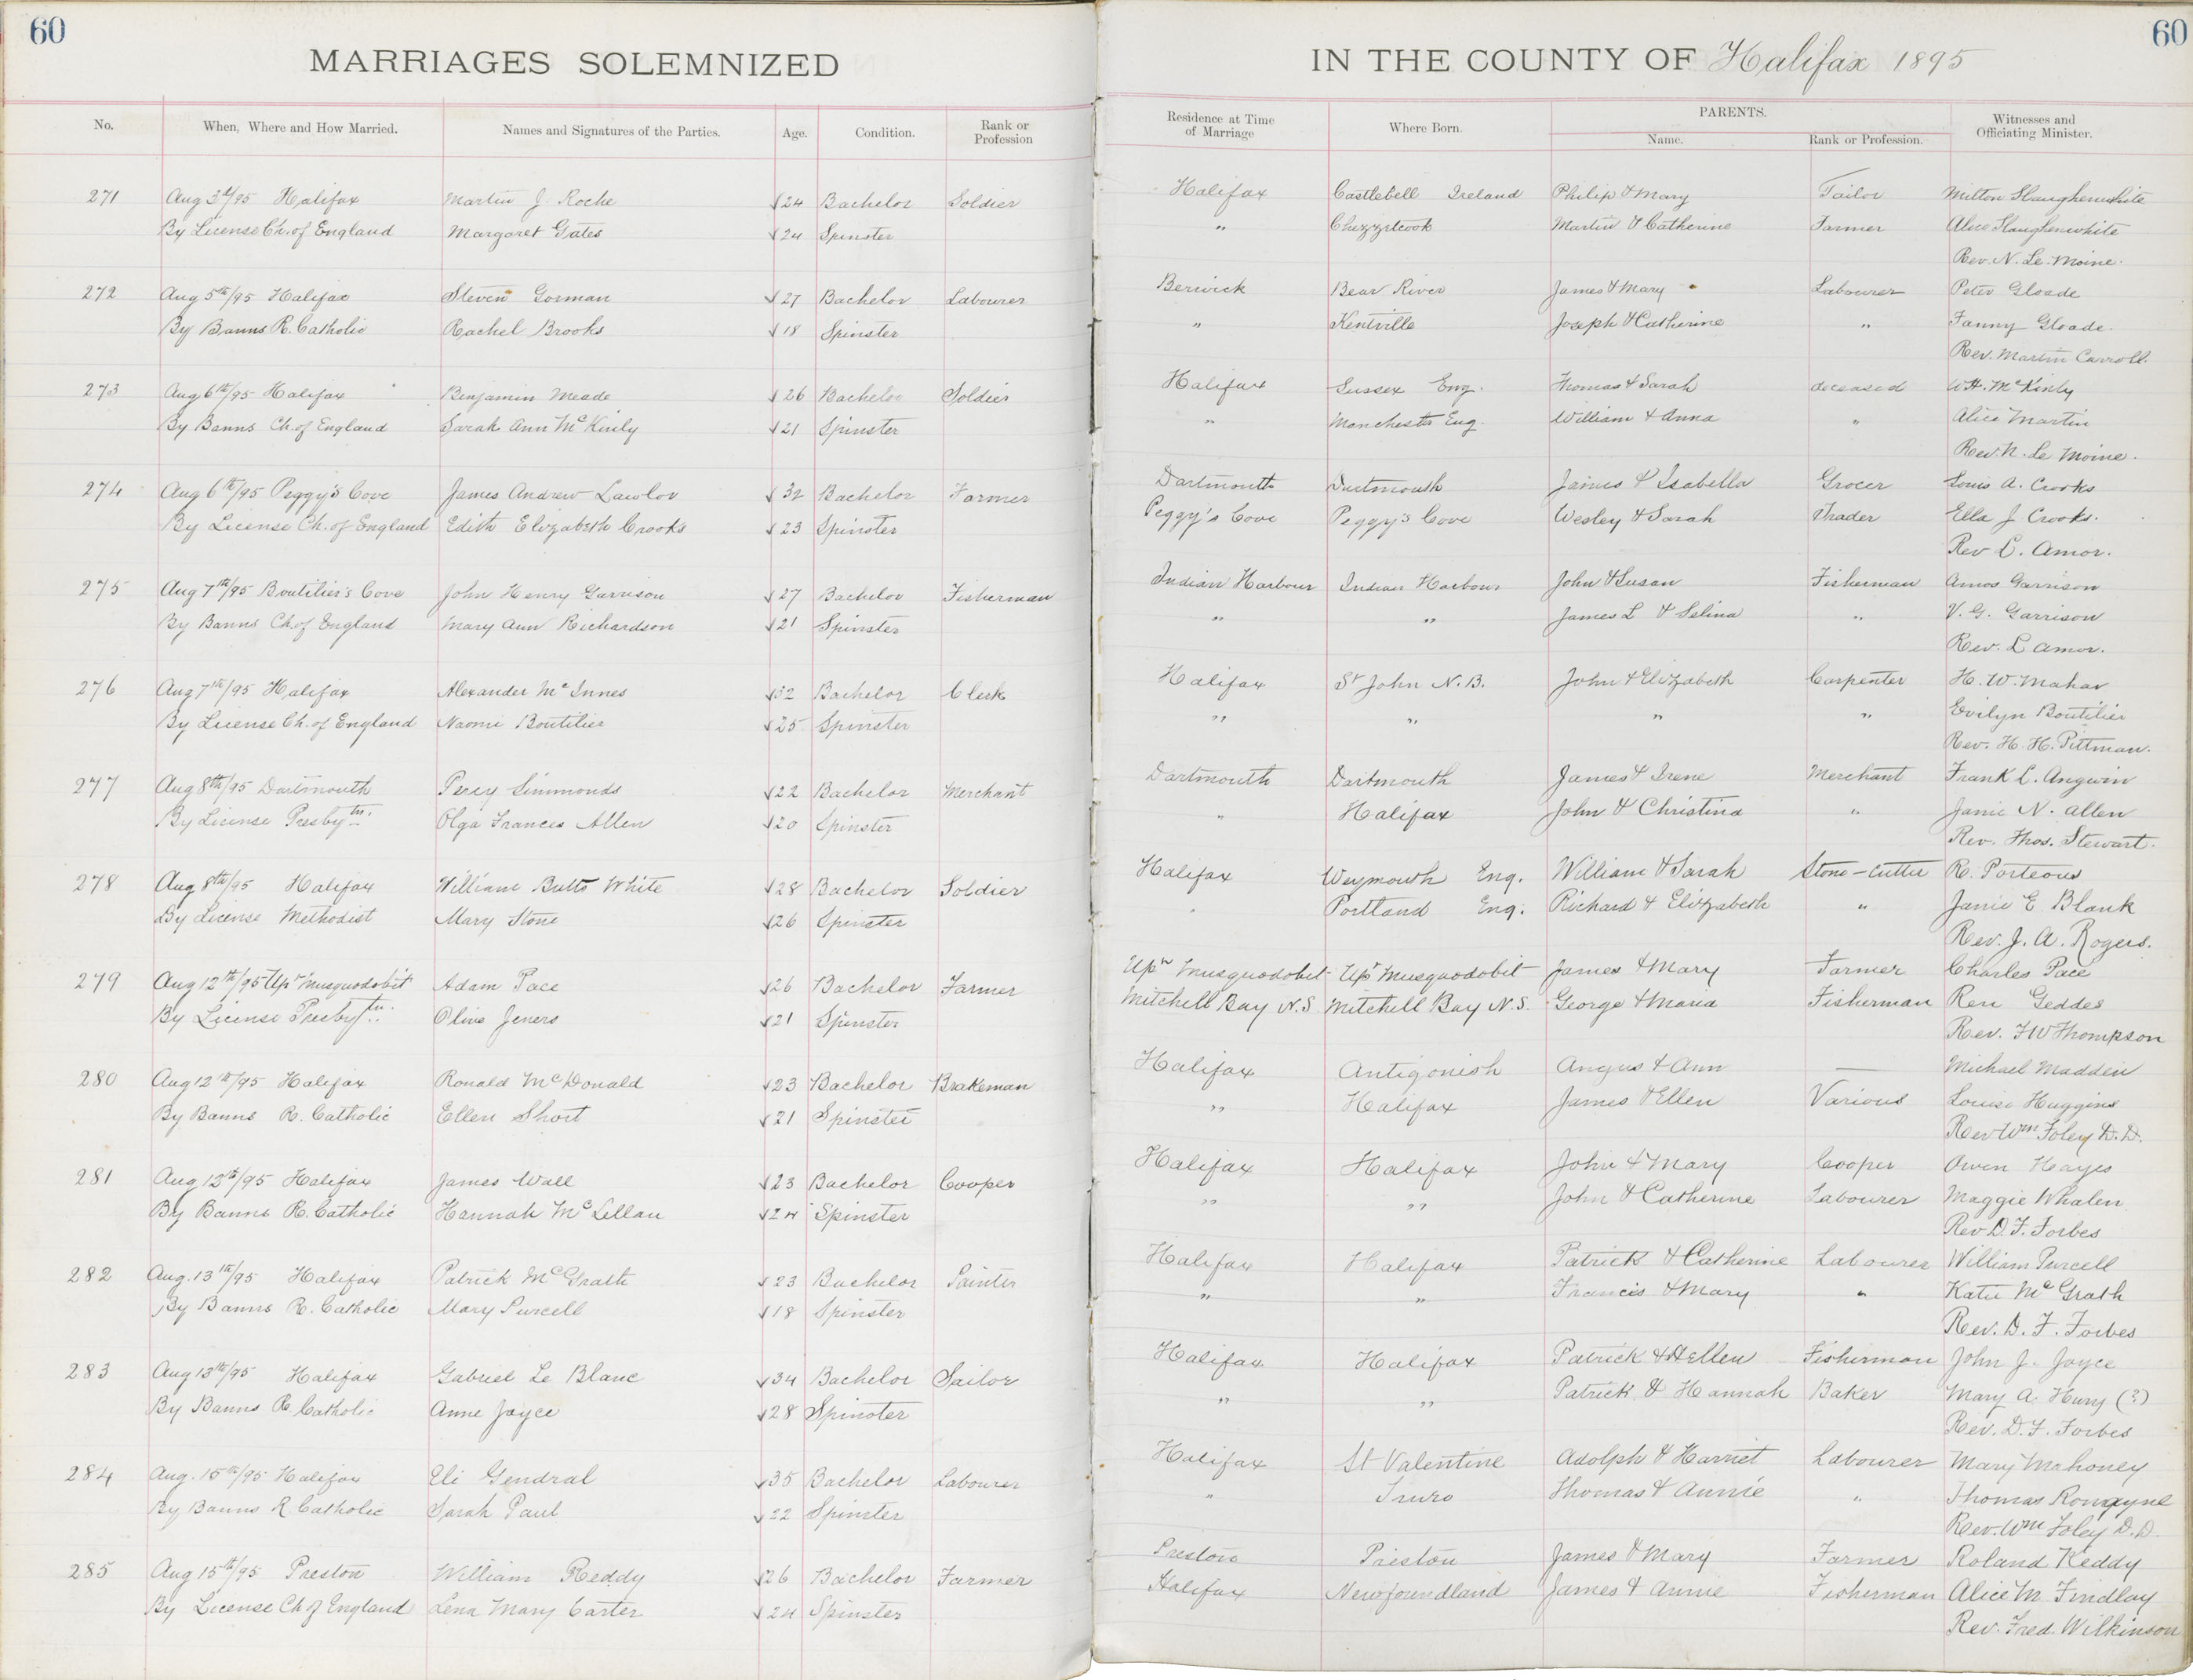 60
MARRIAGES SOLEMNIZED
IN THE COUNTY OF Halifax 1895
60
No. When, Where and How Married. Names and Signatures of the Parties. Age. Condition. Rank or Profession Residence at Time of Marriage Where Born. PARENTS. Name. Rank or Profession. Witnesses and Officiating Minister.
271 Aug 3rd/95 Halifax Martin J. Roche √24 Bachelor Soldier Halifax Castlebell Ireland Philip & Mary Tailor Milton Slaughenwhite
By License Ch. of England Margaret Gates √24 Spinster " Chezzetcook Martin & Catherine Farmer Alice Slaughenwhite
Rev. N. Le Moine.
272 Aug 5th/95 Halifax Steven Gorman √27 Bachelor Labourer Berwick Bear River James & Mary Labourer Peter Gloade
By Banns R. Catholic Rachel Brooks √18 Spinster " Kentville Joseph & Catherine " Fanny Gloade.
Rev. Martin Carroll.
273 Aug 6th/95 Halifax Benjamin Meade √26 Bachelor Soldier Halifax Sussex Eng. Thomas & Sarah deceased W.H. McKinly
By Banns Ch. of England Sarah Ann McKinly √21 Spinster " Manchester Eng. William & Anna " Alice Martin
Rev. N. Le Moine.
274 Aug 6th/95 Peggy's Cove James Andrew Lawlor √32 Bachelor Farmer Dartmouth Dartmouth James & Isabella Grocer Louis A. Crooks
By License Ch. of England Edith Elizabeth Crooks √23 Spinster Peggy's Cove Peggy's Cove Wesley & Sarah Trader Ella J Crooks.
Rev L. Amor.
275 Aug 7th/95 Boutilier's Cove John Henry Garrison √27 Bachelor Fisherman Indian Harbour Indian Harbour John & Susan Fisherman Amos Garrison
By Banns Ch. of England Mary Ann Richardson √21 Spinster " " James L & Selina " V. G. Garrison
Rev. L Amor.
276 Aug 7th/95 Halifax Alexander McInnes √32 Bachelor Clerk Halifax St John N.B. John & Elizabeth Carpenter H. W. Mahar
By License Ch. of England Naomi Boutilier √25 Spinster " " " " Evilyn Boutilier
Rev. H. H. Pittman.
277 Aug 8th/95 Dartmouth Percy Simmonds √22 Bachelor Merchant Dartmouth Dartmouth James & Irene Merchant Frank L. Angwin
By License Presbytn. Olga Frances Allen √20 Spinster " Halifax John & Christina " Janie N. Allen
Rev. Thos. Stewart.
278 Aug 8th/95 Halifax William Butts White √28 Bachelor Soldier Halifax Weymouth Eng. William & Sarah Stone-cutter R. Porteous
By License Methodist Mary Stone √26 Spinster " Portland Eng. Richard & Elizabeth " Janie E Blank
Rev. J. A. Rogers.
279 Aug 12th/95 Upr Musquodobit Adam Pace √26 Bachelor Farmer Upr Musquodobit Upr Musquodobit James & Mary Farmer Charles Pace
By License Presbytn. Olive Jeners √21 Spinster Mitchell Bay N.S. Mitchell Bay N.S. George & Maria Fisherman Geddes
Rev. F W Thompson
280 Aug 12th/95 Halifax Ronald McDonald √23 Bachelor Brakeman Halifax Antigonish Angus & Ann — Michael Madden
By Banns R. Catholic Ellen Short √21 Spinster " Halifax James & Ellen Various Louise Huggins
Rev Wm Foley D.D.
281 Aug 12th/95 Halifax James Wall √23 Bachelor Cooper Halifax Halifax John & Mary Cooper Owen Hayes
By Banns R. Catholic Hannah McLellan √24 Spinster " " John & Catherine Labourer Maggie Whalen
Rev D. F. Forbes
282 Aug. 13th/95 Halifax Patrick McGrath √23 Bachelor Painter Halifax Halifax Patrick & Catherine Labourer William Purcell
By Banns R. Catholic Mary Purcell √18 Spinster " " Francis & Mary " Katie McGrath
Rev. D. F. Forbes
283 Aug 13th/95 Halifax Gabriel Le Blanc √34 Bachelor Sailor Halifax Halifax Patrick & Ellen Fisherman John J. Joyce
By Banns R. Catholic Anne Joyce √28 Spinster " " Patrick & Hannah Baker Mary A. Hury (?)
Rev. D. F. Forbes
284 Aug. 15th/95 Halifax Eli Gendral √35 Bachelor Labourer Halifax St Valentine Adolph & Harriet Labourer Mary Mahoney
By Banns R Catholic Sarah Paul √32 Spinster " Truro Thomas & Annie " Thomas Romayne
Rev. Wm Foley D. D.
285 Aug 15th/95 Preston William Keddy √26 Bachelor Farmer Preston Preston James & Mary Farmer Roland Keddy
By License Ch of England Lena Mary Carter √24 Spinster Halifax Newfoundland James & Annie Fisherman Alice M. Findlay
Rev. Fred. Wilkinson